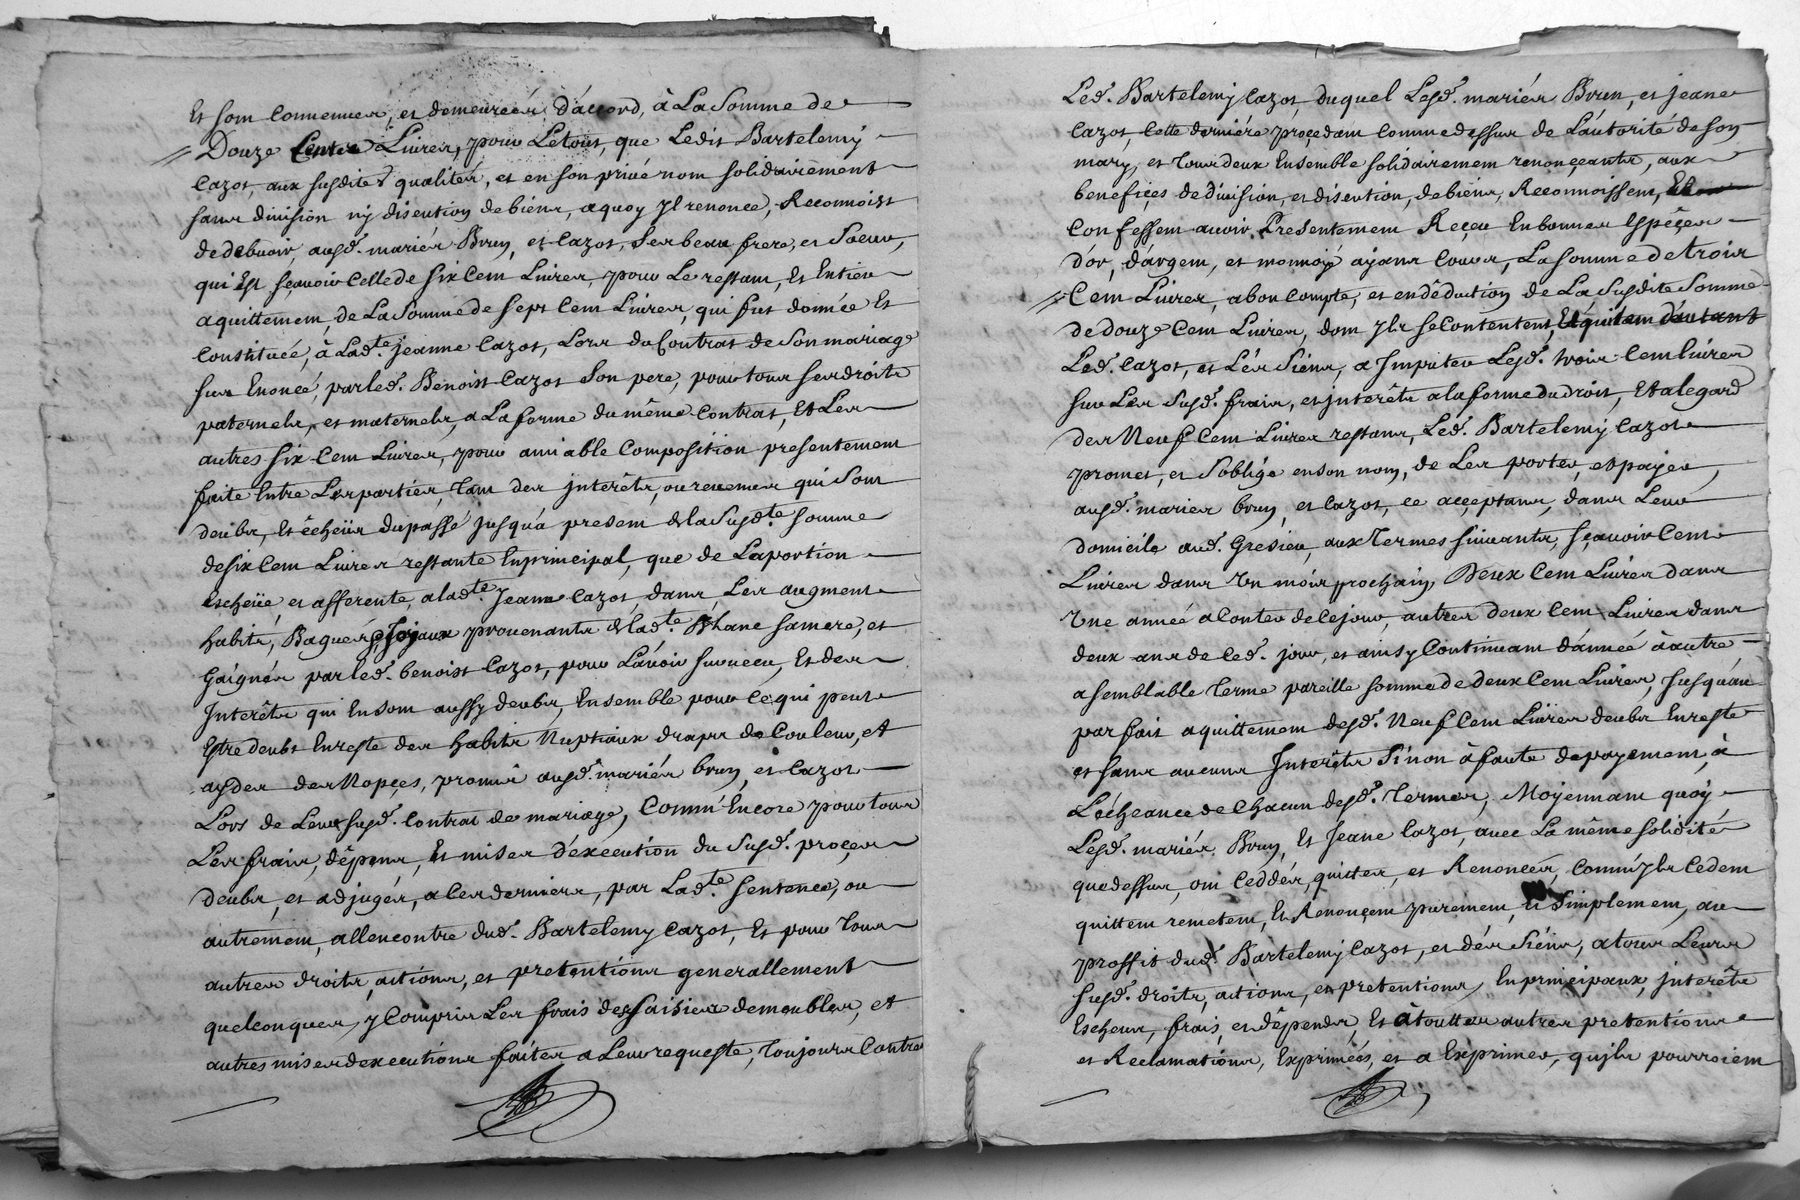 Et sont Convenues, et demeurées D'accord, à La Somme de
Douze Cents Livres, pour Letout, que Ledit Bartelemy
Cazot, aux susdites qualités, et en son privé nom solidairement
sans division ny discution de biens, aquoy yl renonce, Reconnoist
de debvoir, ausd. mariés Brun, et Cazot, Ses beau frere, et Soeur,
qui Est sçavoir Celle de six Cent Livres, pour Le restant, Et Entier
aquittement, de La Somme de sept Cent Livres, qui fut donnée Et
Constituée, à Lad.te Jeanne Cazot, Lors du Contrat de Son mariage
sus Enoncé, par led. Benoist Cazot Son pere, pour tous ses droits
paternels, et maternels, a La forme du même Contrat, Et Les
autres six Cent Livres, pour amiable Composition presentement
faite Entre Les parties, tant des jnterêts, ou revenus qui Sont
deubs, Et êcheüs du passé jusqu'a present de la Susd.te somme
de six Cent Livres restante En principal, que de La portion
Escheüe, et afferente, a lad.te Jeanne Cazot, dans Les augment
habits, Bagues, et Joyaux provenants de lad.te Phane Sa mere, et
Gaignés par led. benoist Cazot, pour L'avoir survecu, Et des
Interêts qui En sont aussy deubs, Ensemble pour Ce qui peut
Estre deubt En reste des habits Nuptiaux draps de Couleur, et
ayde des Nopçes, promis ausd. mariés brun, et Cazot
Lors de Leur susd. Contrat de mariage, Comm'Encore pour tous
Les frais, dêpens, Et mises d'execution du Susd. proçes
deubs, et adjugés, a Ces derniers, par Lad.te Sentence, ou
autrement, allencontre dud. Bartelemy Cazot, Et pour tous
autres droits, actions, et pretentions generallement
quelconques, y Compris Les frais des Saisies de meubles, et
autres mises d'executions faites a Leur requeste, toujours Contre
Led. Bartelemy Cazot, duquel Lesd. mariés Brun, et Jeane
Cazot, Cette derniére proçedant Comme dessus de L'autorité de son
mary, et tous deux Ensemble solidairement renonçeants, aux
benefices de division, et discution, de biens, Reconnoissent, Et
Confessent avoir Presentement Reçeu En bonnes Espêçes
d'or, d'argent, et monnoye ayans Cours, La somme de trois
Cent Livres, a bon Compte, et en dêduction de La Susdite Somme
de douze Cent Livres, dont yls se Contentent, Et quittent d'autant
Led. Cazot, et Les Siens, a Imputer Lesd. trois Cent Livres
sur Les Susd. frais, et jnterêts a la forme du droit, Et a legard
des Neuf Cent Livres restans, Led. Bartelemy Cazot
promet, et S'oblige en son nom, de Les porter, et payer,
ausd. mariés brun, et Cazot, ce acçeptans, dans Leur
domicile aud. Gresieu, aux termes suivants, sçavoir Cent
Livres dans Un mois prochain, Deux Cent Livres dans
Une année a Conter de Ce jour, autres deux Cent Livres dans
deux ans de Ced. jour, et ainsy Continuant d'année à autre,
a semblable terme pareille somme de deux Cent Livres, Jusqu'au
parfait aquittement desd. Neuf Cent Livres deubs En reste
et sans aucuns Interêts Sinon à faute de payement, à
L'êcheance de Chacun desd. termes, Moyennant quoy
Lesd. mariés Brun, Et Jeane Cazot, avec La même solidité
que dessus, ont Ceddés, quittés, et Renoncés, Comm'yls Cedent
quittent remetent, Et Renonçent purement, et Simplement, au
proffit dud. Bartelemy Cazot, et des Siens, a tous Leurs
susd. droits, actions, et pretentions, En principaux, jnterêts
Escheus, frais, et dêpends, Et à touttes autres pretentions
et Reclamations, Exprimées, et a Exprimer, qu'yls pourroient